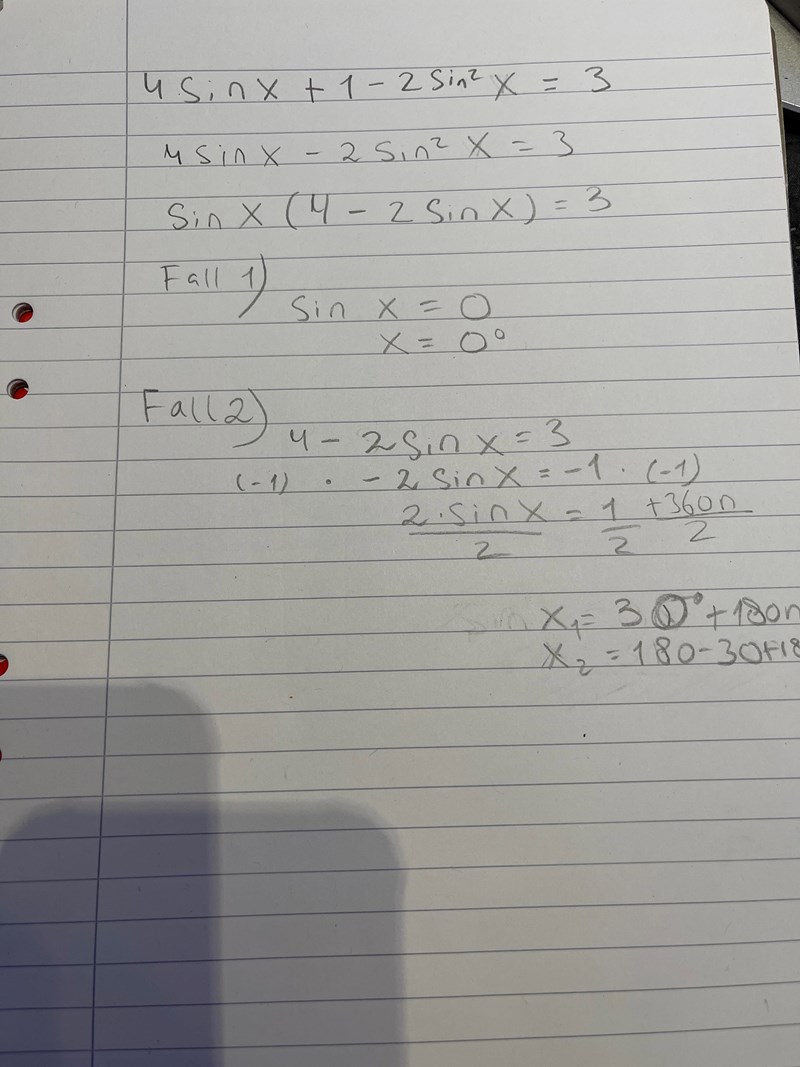 4 sin x + 1 - 2 sin² x = 3
4 sin x - 2 sin² x = 3
sin x (4 - 2 sin x) = 3
Fall 1)
sin x = 0
x = 0°
Fall 2)
4 - 2 sin x = 3
(-1) · - 2 sin x = -1 · (-1)
2 · sin x / 2 = 1 / 2 + 360n / 2
x₁ = 30° + 180n
x₂ = 180 - 30 + 18